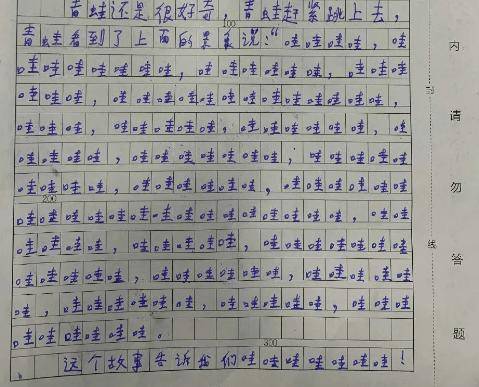 青蛙还是很好奇，青蛙赶紧跳上去，
100
青蛙看到了上面的景象说：“哇哇哇哇，哇
哇哇哇哇哇哇哇，哇哇哇哇哇哇，哇哇哇
哇哇哇哇，哇哇哇哇哇哇哇哇哇哇哇哇，
哇哇哇哇，哇哇哇哇哇，哇哇哇哇哇哇，哇
哇哇哇哇，哇哇哇哇哇哇哇，哇哇哇哇哇
哇哇哇哇哇，哇哇哇哇哇哇，哇哇哇哇哇哇
200
哇哇哇哇哇哇哇哇哇哇哇哇哇哇，哇哇
哇哇哇哇哇，哇哇哇哇哇，哇哇哇哇哇哇哇
哇哇哇哇哇哇，哇哇哇哇哇哇，哇哇哇哇哇
哇，哇哇哇哇哇哇哇，哇哇哇哇哇，哇哇哇哇
哇哇哇哇哇哇。
300
这个故事告诉我们哇哇哇哇哇哇哇！
内请勿答题
封线